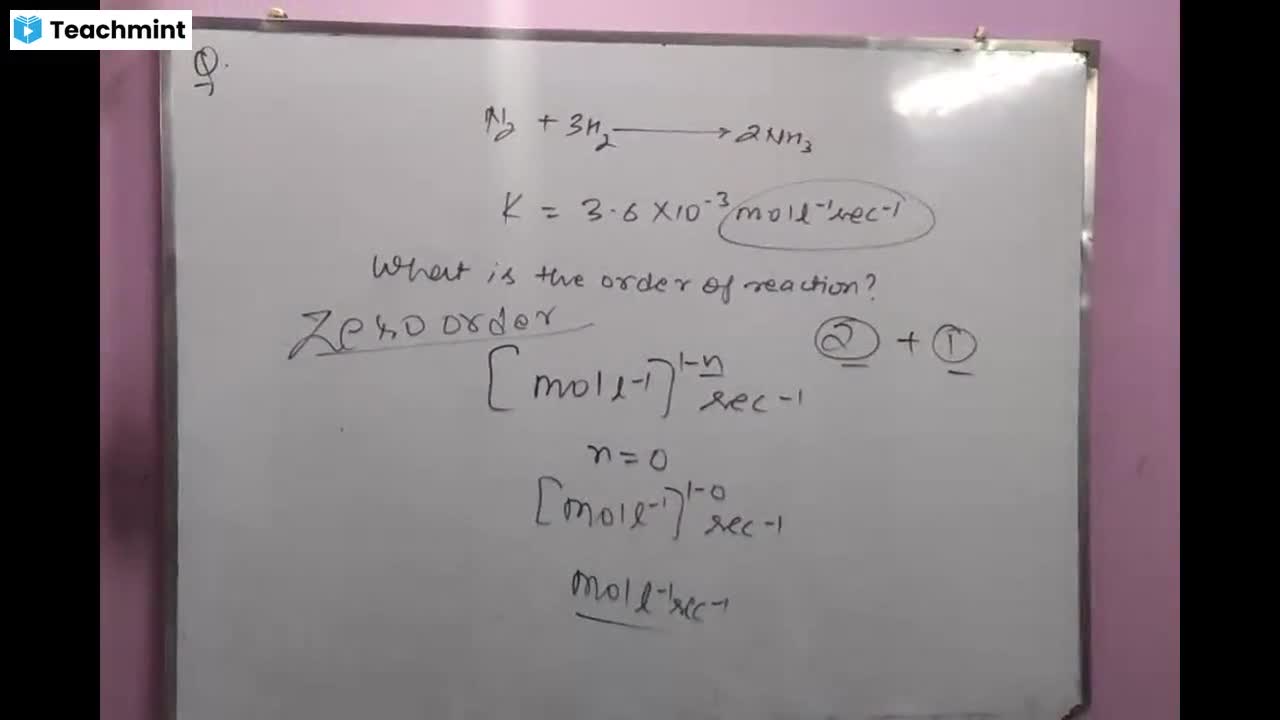 Teachmint
Q.
N2 + 3H2 → 2NH3
K = 3.6 × 10⁻³ mol l⁻¹ sec⁻¹
What is the order of reaction?
Zero order
② + ①
[mol l⁻¹]¹⁻ⁿ sec⁻¹
n = 0
[mol l⁻¹]¹⁻⁰ sec⁻¹
mol l⁻¹ sec⁻¹